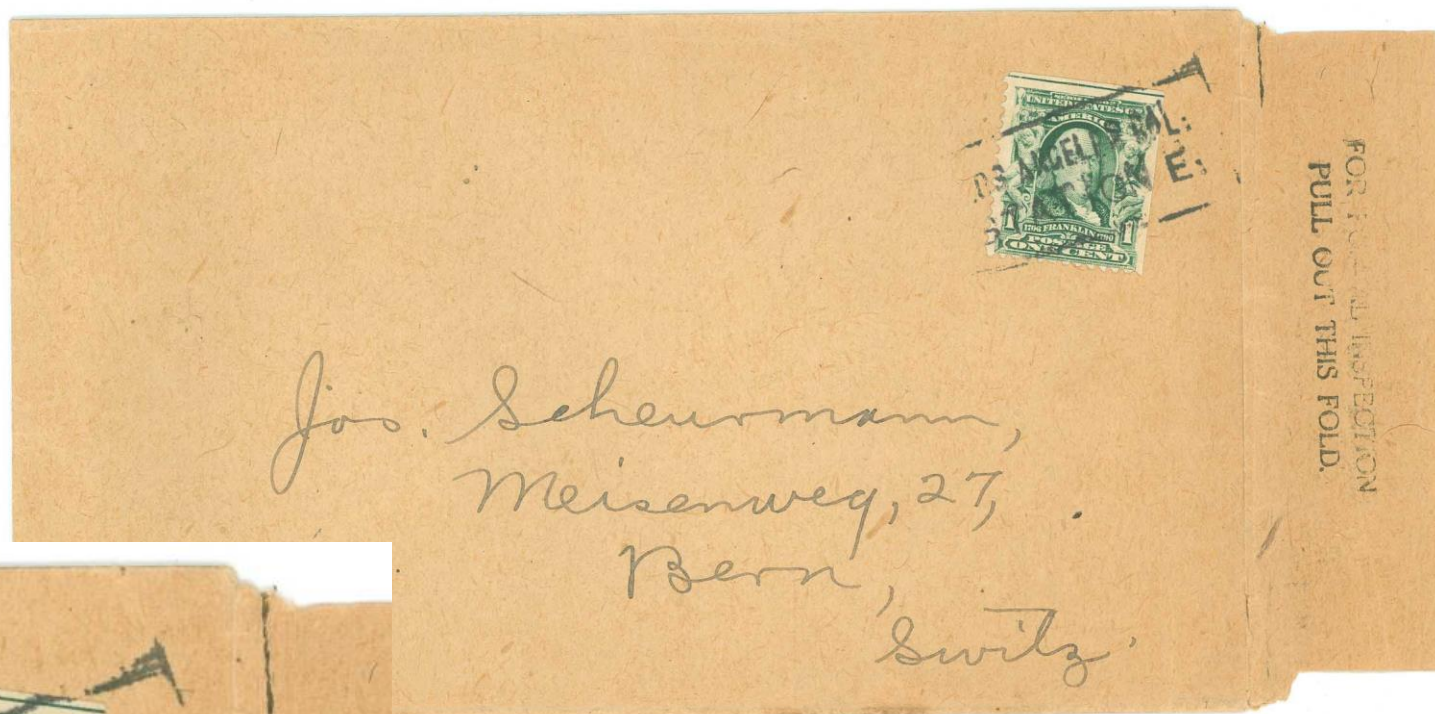 SERIES 1902
UNITED STATES OF
AMERICA
LOS ANGELES CAL.
1706 FRANKLIN 1790
1 POSTAGE 1
ONE CENT
FOR POSTAL INSPECTION
PULL OUT THIS FOLD.
Jos. Scheurmann,
Meisenweg, 27,
Bern,
Switz.